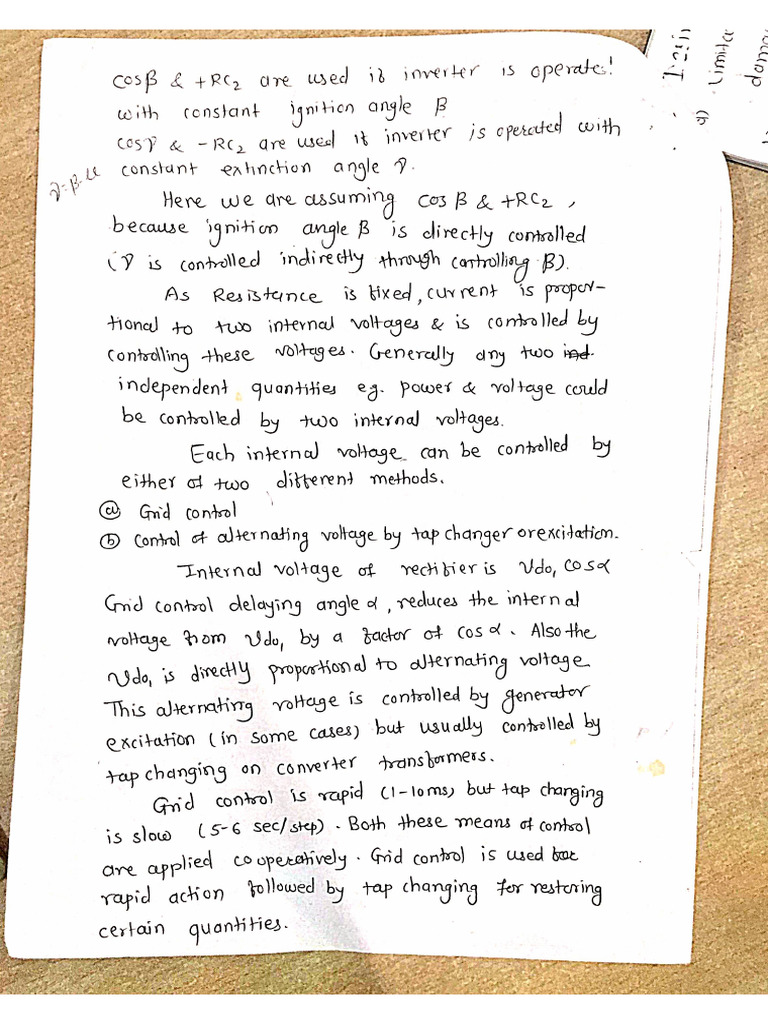 cosβ & +RC₂ are used if inverter is operate
with constant ignition angle β
cosγ & -RC₂ are used if inverter is operated with
constant extinction angle γ.
γ=β-u
Here we are assuming cosβ & +RC₂,
because ignition angle β is directly controlled
(γ is controlled indirectly through controlling β).
As Resistance is fixed, current is propor-
tional to two internal voltages & is controlled by
controlling these voltages. Generally any two ind.
independent quantities eg. power & voltage could
be controlled by two internal voltages.
Each internal voltage can be controlled by
either of two different methods.
ⓐ Grid control
ⓑ control of alternating voltage by tap changer or excitation.
Internal voltage of rectifier is Vdo₁ cosα
Grid control delaying angle α, reduces the internal
voltage from Vdo₁ by a factor of cosα. Also the
Vdo₁ is directly proportional to alternating voltage
This alternating voltage is controlled by generator
excitation (in some cases) but usually controlled by
tap changing on converter transformers.
Grid control is rapid (1-10ms) but tap changing
is slow (5-6 sec/step). Both these means of control
are applied cooperatively. Grid control is used for
rapid action followed by tap changing for restoring
certain quantities.
g)
limita